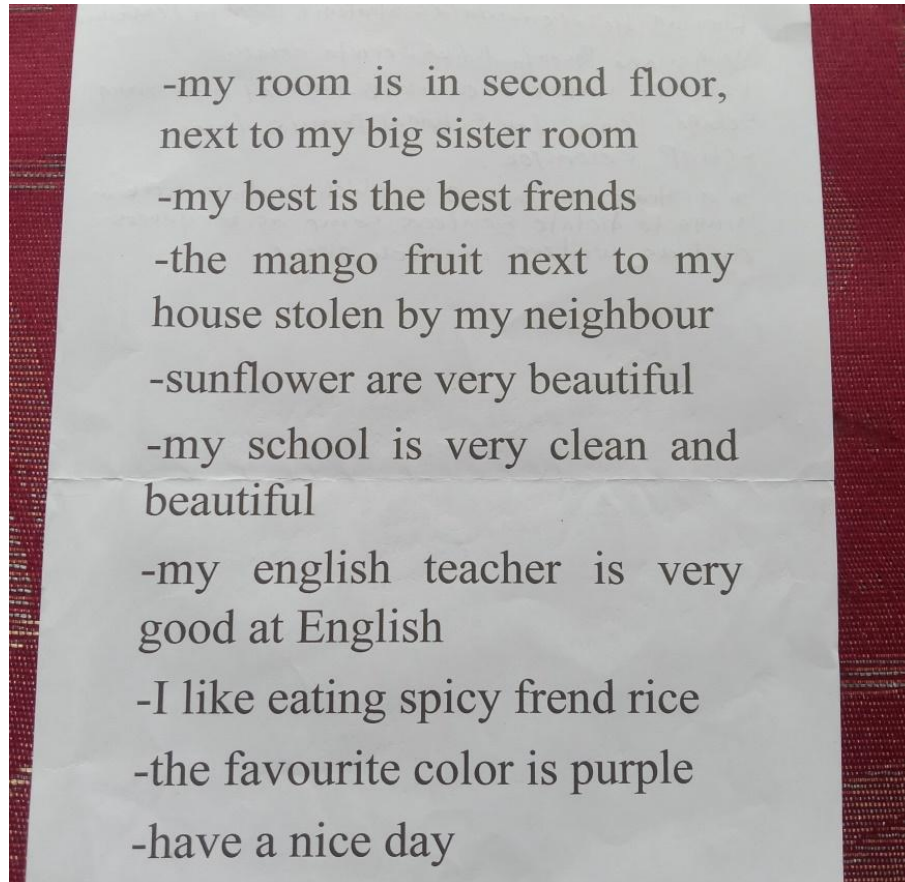 -my room is in second floor,
next to my big sister room
-my best is the best frends
-the mango fruit next to my
house stolen by my neighbour
-sunflower are very beautiful
-my school is very clean and
beautiful
-my english teacher is very
good at English
-I like eating spicy frend rice
-the favourite color is purple
-have a nice day